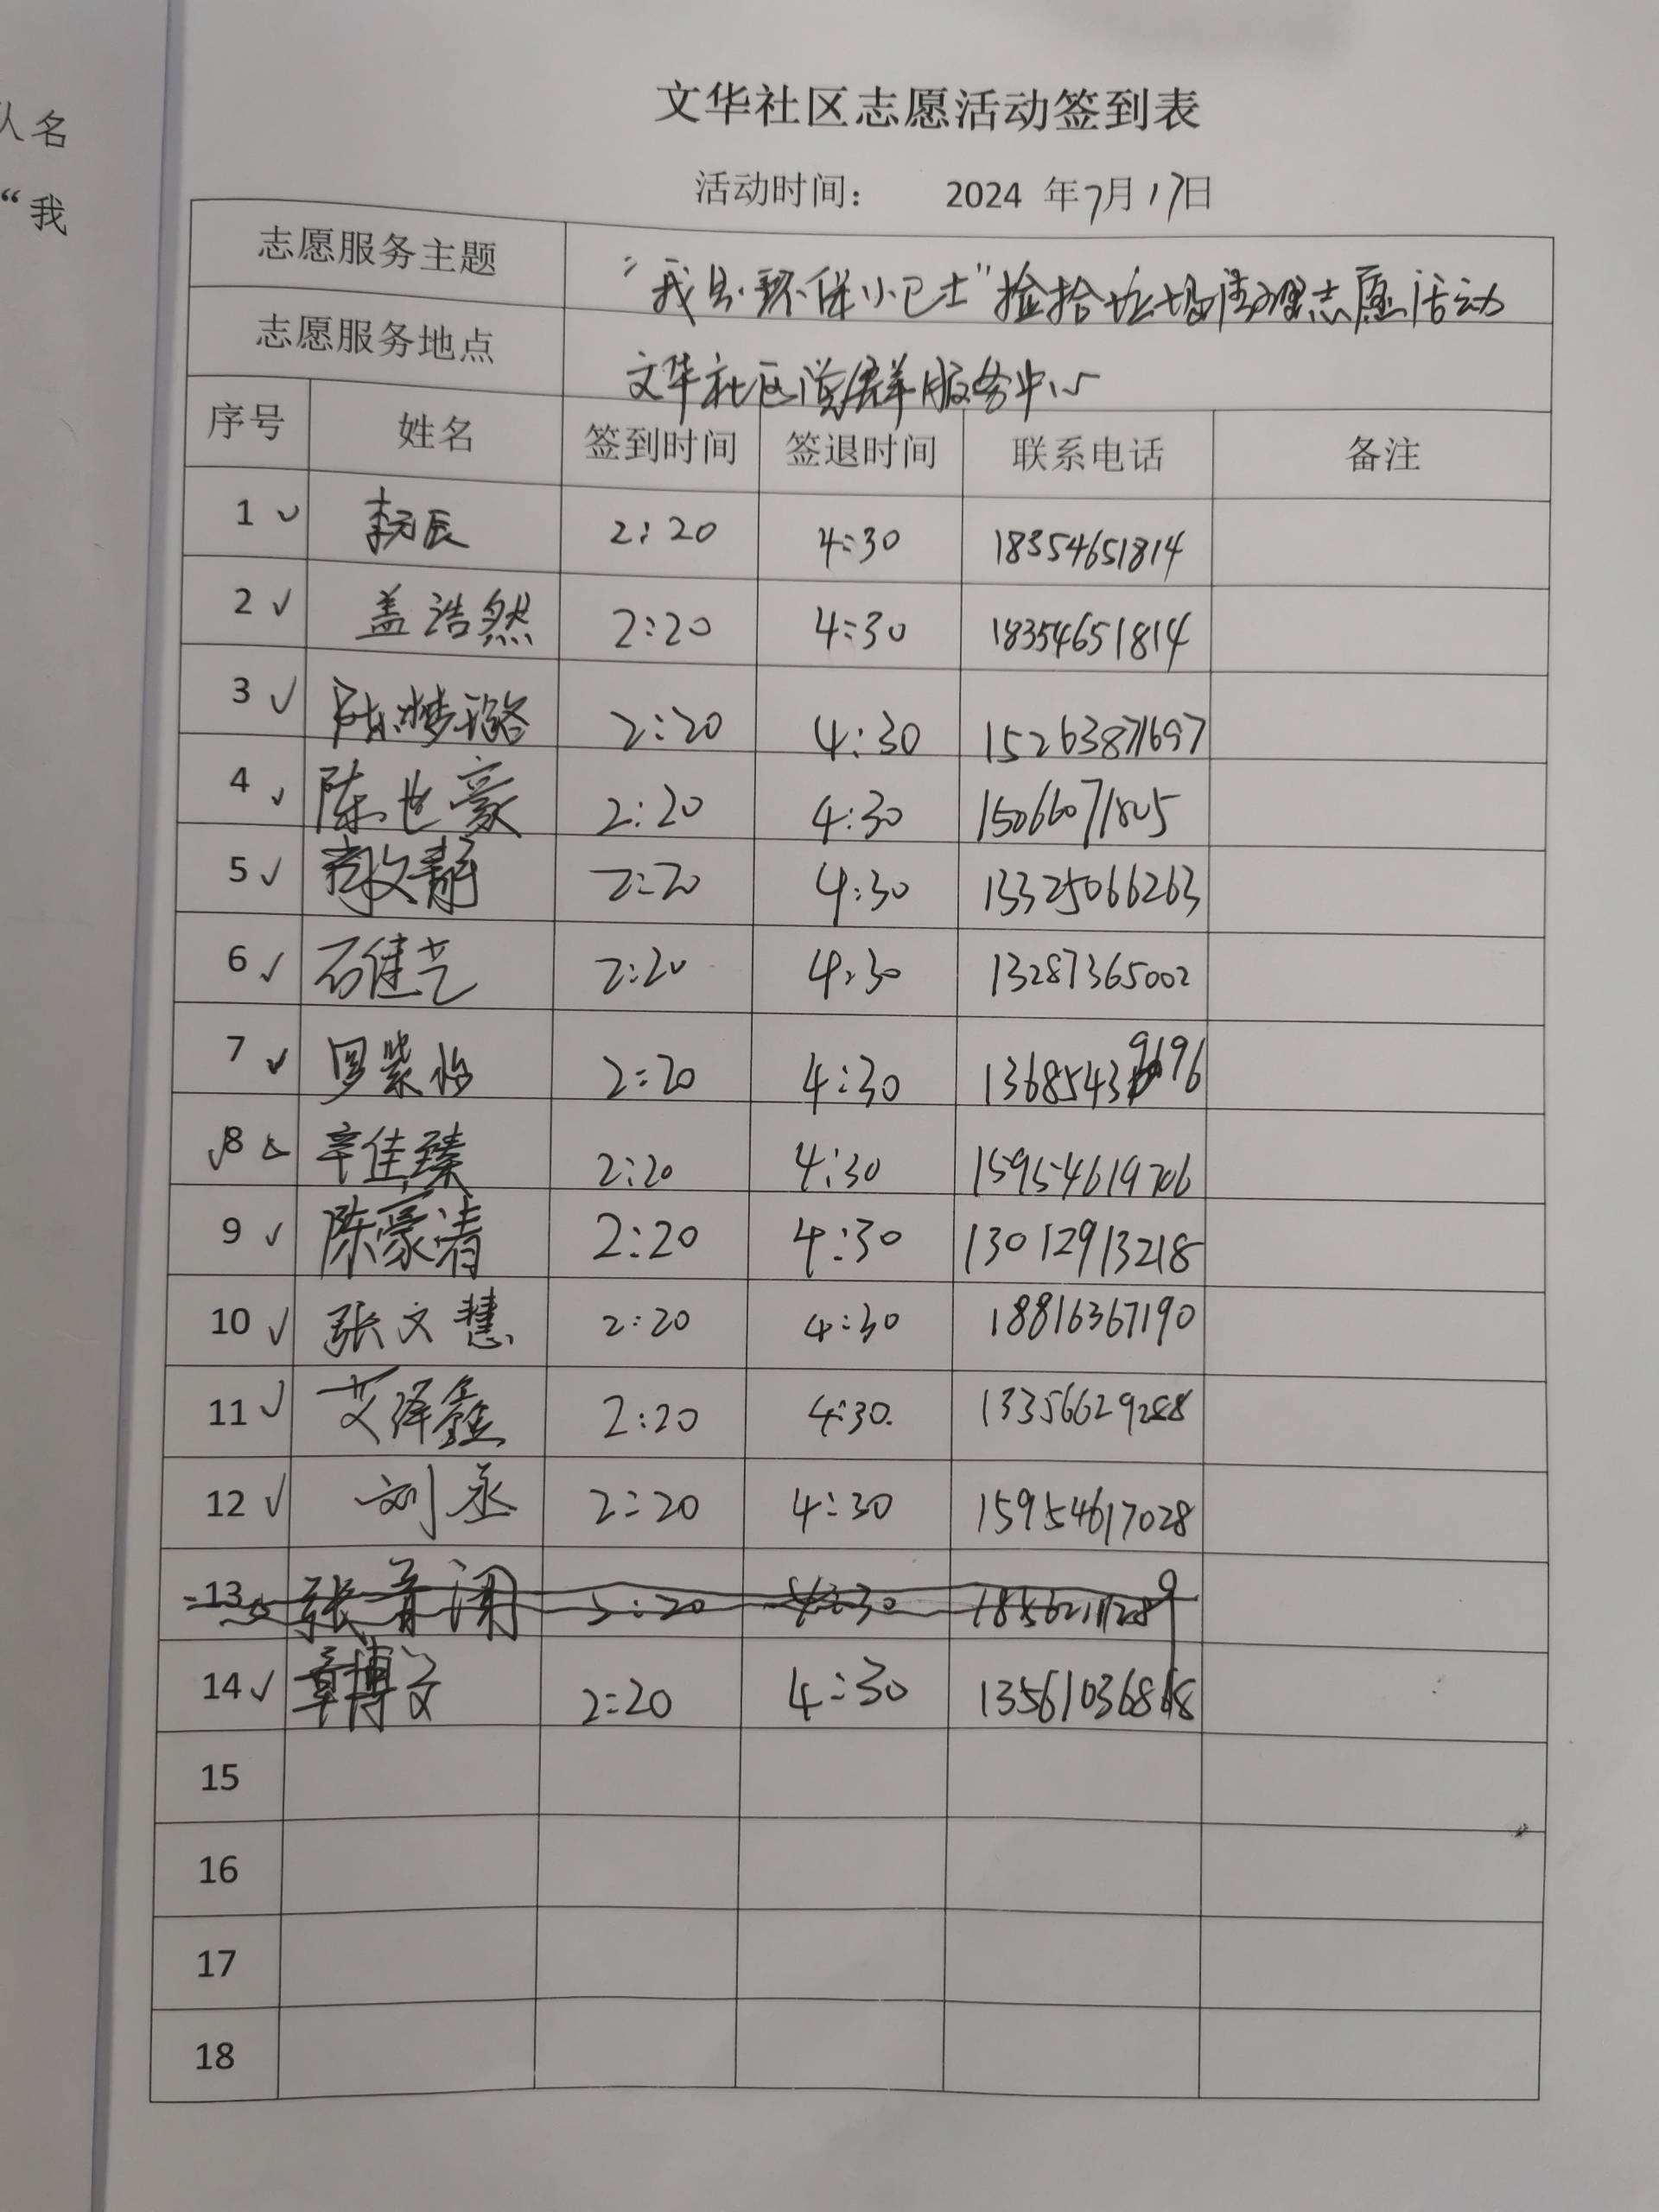 人名
“我
文华社区志愿活动签到表
活动时间： 2024 年7月17日
志愿服务主题 “我是环保小卫士”捡拾垃圾清理志愿活动
志愿服务地点 文华社区党群服务中心
序号 姓名 签到时间 签退时间 联系电话 备注
1 ✓ 李 辰 2:20 4:30 18354651814
2 ✓ 盖浩然 2:20 4:30 18354651814
3 ✓ 陈梦璐 2:20 4:30 15263871697
4 ✓ 陈世豪 2:20 4:30 15066071805
5 ✓ 文静 2:20 4:30 13325066263
6 ✓ 石佳艺 2:20 4:30 13287365002
7 ✓ 罗紫怡 2:20 4:30 13685439696
✓ 8 辛佳臻 2:20 4:30 15954619706
9 ✓ 陈豪清 2:20 4:30 13012913218
10 ✓ 张文慧 2:20 4:30 18816367190
11 ✓ 艾泽鑫 2:20 4:30. 13356629288
12 ✓ 刘丞 2:20 4:30 15954617028
13 张 2:20 4:30
14 ✓ 章博文 2:20 4:30
15
16
17
18